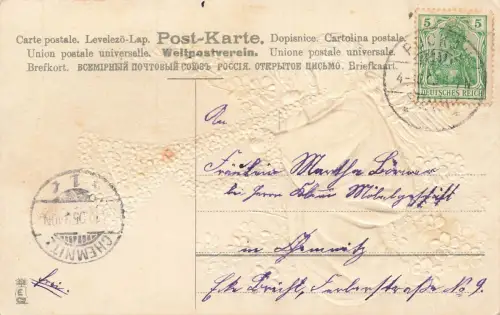 Carte postale. Levelezö-Lap. Post-Karte. Dopisnice. Cartolina postale.
Union postale universelle. Weltpostverein. Unione postale universale.
Brefkort. ВСЕМІРНЫЙ ПОЧТОВЫЙ СОЮЗЪ РОССІЯ. ОТКРЫТОЕ ПИСЬМО. Briefkaart.
5 5
DEUTSCHES REICH
An
Fräulein Martha Börner
bei Herrn Möbelgeschäft
in Chemnitz
Ecke Brühl, Färberstraße No 9.
frei.
CHEMNITZ